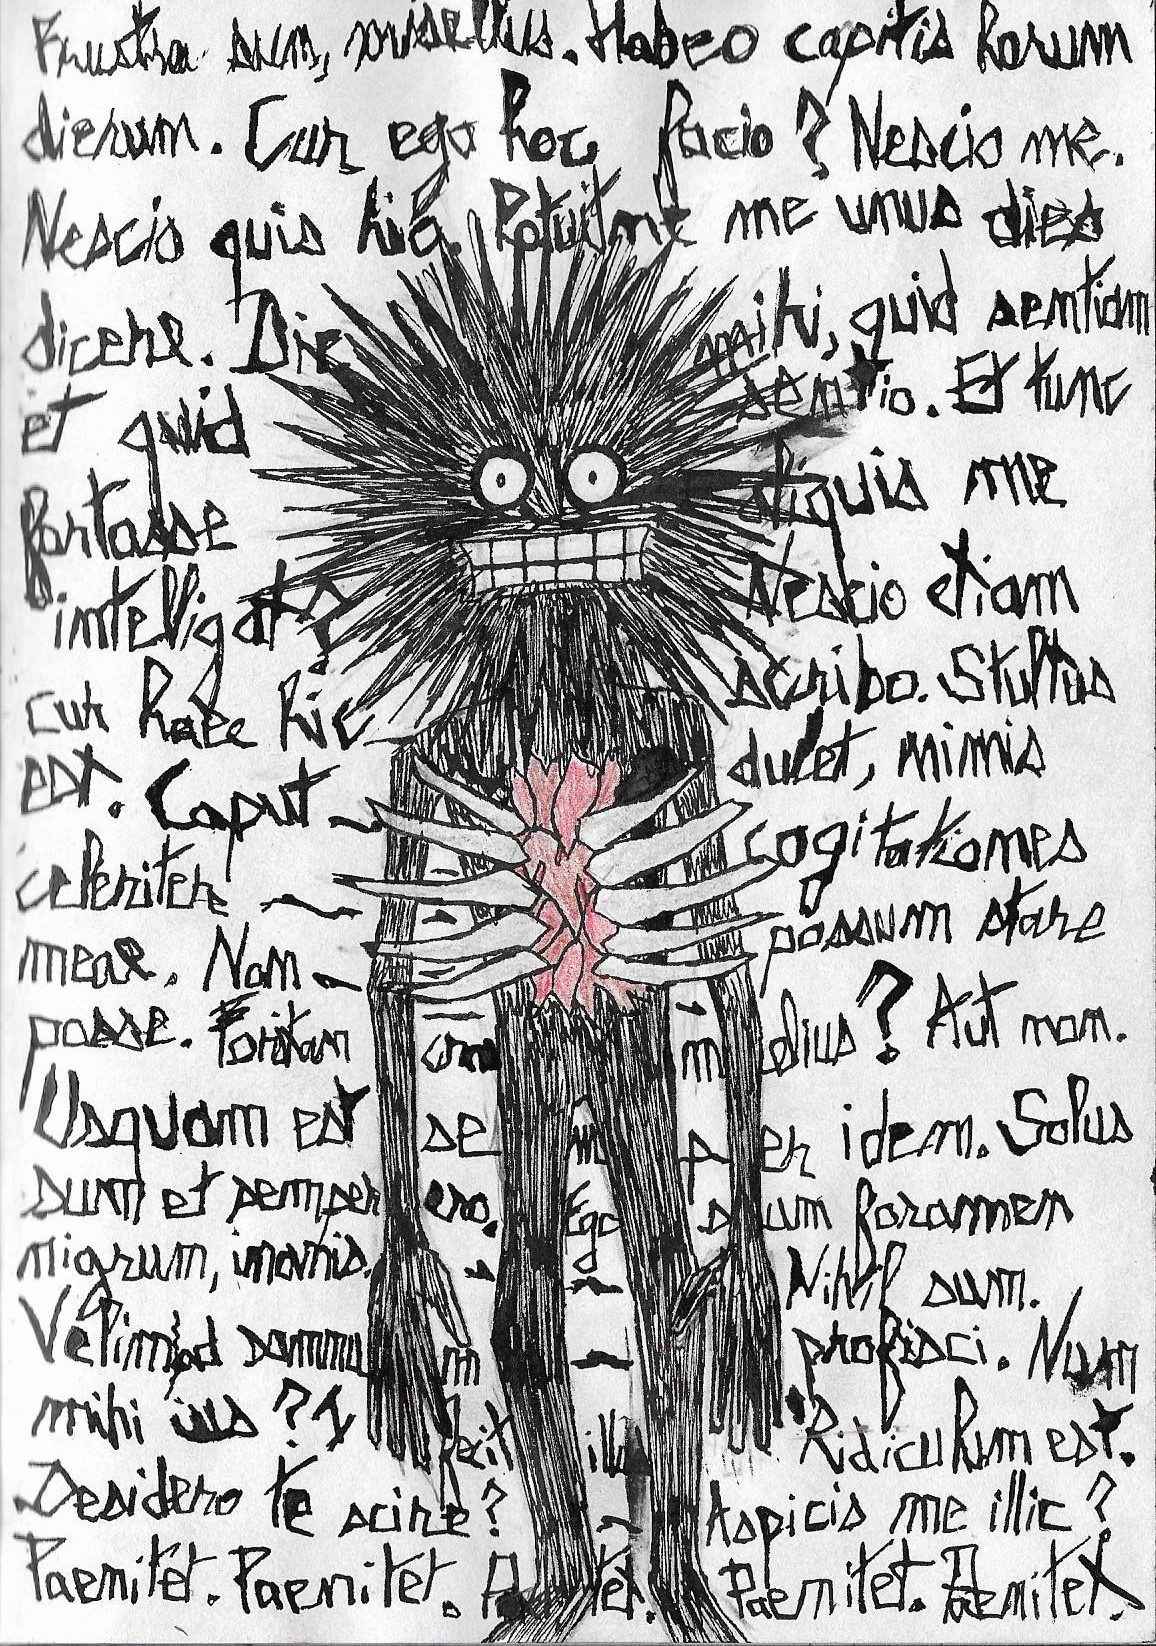 Frustra sum, misellus. Habeo capitis horum
dierum. Cur ego hoc facio? Nescio me.
Nescio quis hic. me unus dies
dicere. Dic mihi, quid sentiam
et quid sentio. Et tunc
fortasse aliquis me
intelligat? Nescio etiam
cur haec hic scribo. Stultus
est. Caput dulet, nimis
celeriter cogitationes
meae. Non possum stare
posse. Forsitan cras melius? Aut non.
Usquam est semper idem. Solus
sum et semper ero. Ego sum foramen
nigrum, inanis. Nihil sum.
Velim ad somnum profisci. Num
mihi ius? Fecit illu Ridiculum est.
Desidero te scire? Aspicis me illic?
Paenitet. Paenitet. Paenitet. Paenitet. Paenitet.